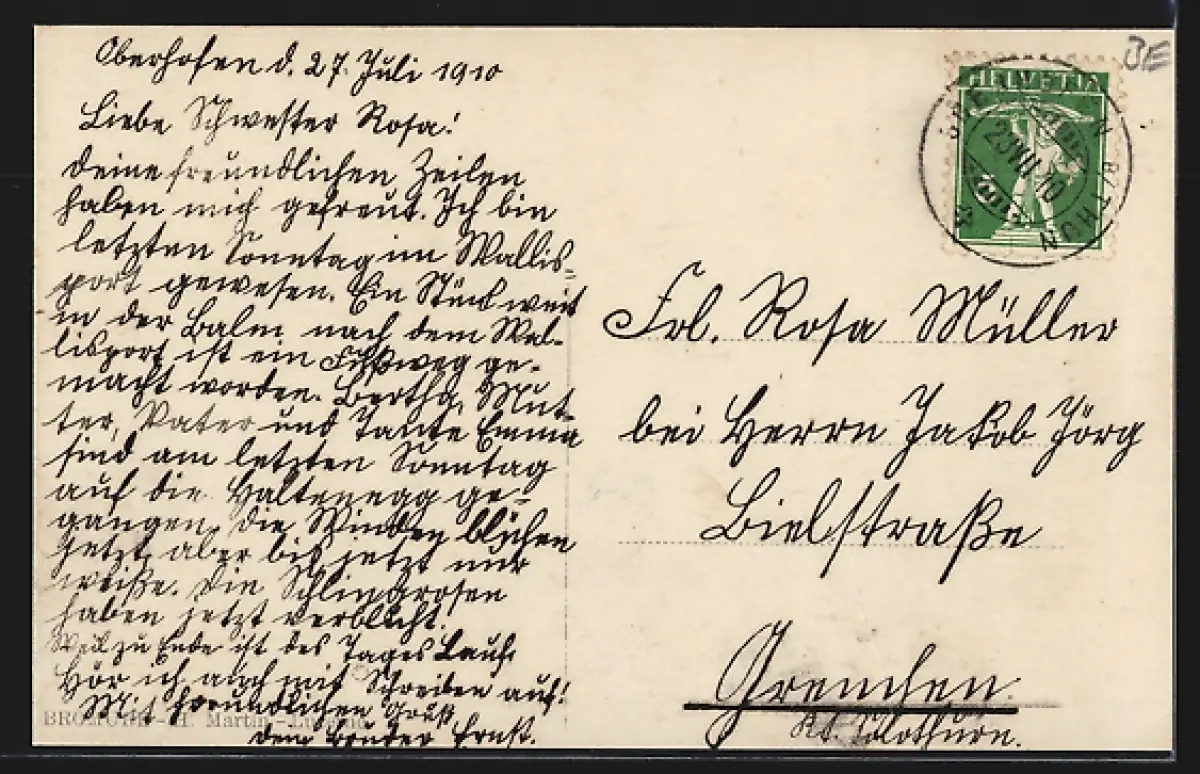 Oberhofen d. 27. Juli 1910
Liebe Schwester Rosa!
Deine freundlichen Zeilen
haben mich gefreut. Ich bin
letzten Sonntag im Wallis-
port gewesen. Ein Stück weit
in der Balm nach dem Wal-
lisport ist ein Fußweg ge-
macht worden. Bertha, Mut-
ter, Vater und Tante Emma
sind am letzten Sonntag
auf die Haltenegg ge-
gangen. Die Winden blühen
jetzt, aber bis jetzt nur
weiße. Die Schlingrosen
haben jetzt verblüht.
Weil zu Ende ist des Tages Lauf,
Hör ich auch mit Schreiben auf!
Mit freundlichen Gruß
dein Bruder Ernst.
BROMÜRE - H. Martin - Lausanne
BE
HELVETIA
THUN
VII 10
Frl. Rosa Müller
bei Herrn Jakob Jörg
Bielstraße
Grenchen
Kt. Solothurn.